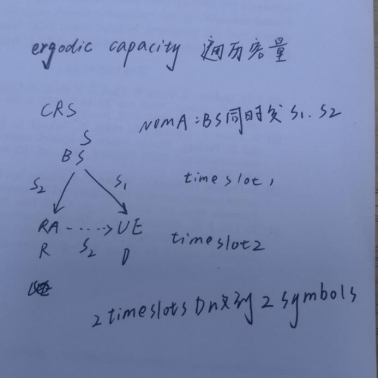 ergodic capacity 遍历容量
CRS
NOMA:BS同时发 S1、S2
S
BS
S2 S1
timeslot1
RA ----> UE
R S2 D
timeslot2
2 timeslots D收到 2 symbols